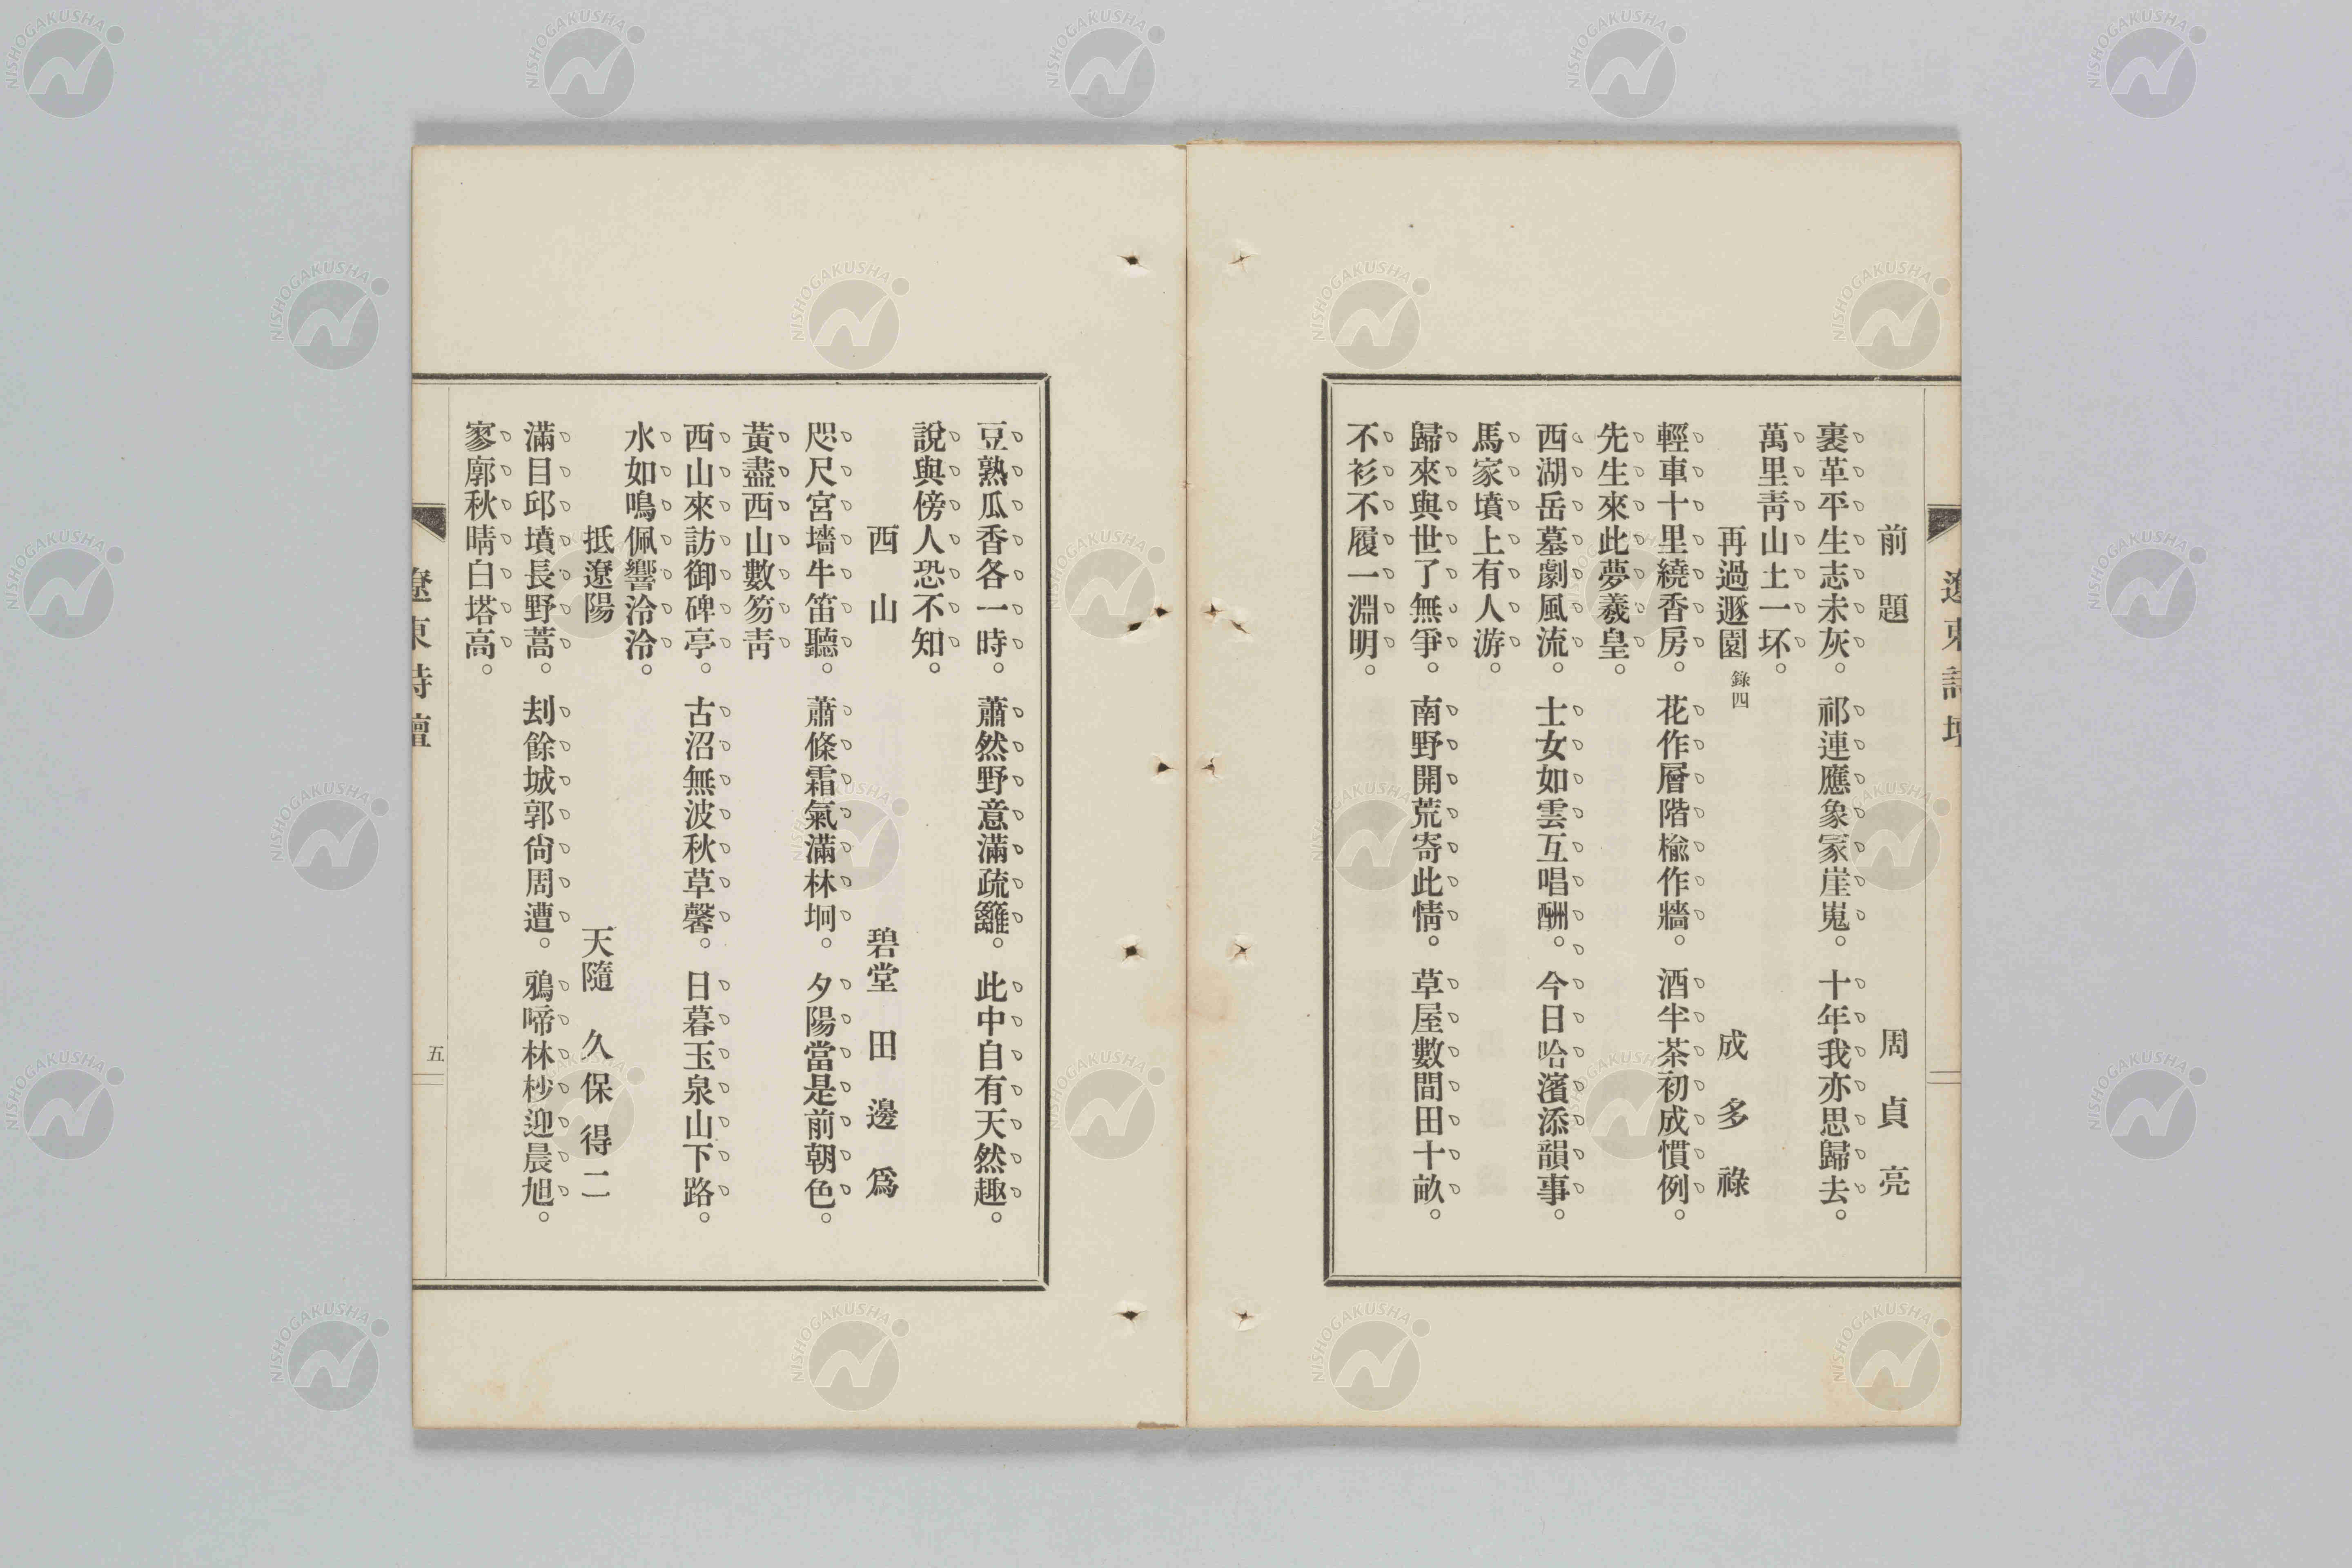 前題　周貞亮
裹革平生志未灰。祁連應象冢崖嵬。十年我亦思歸去。
萬里靑山土一坏。
再過遯園 錄四　成多祿
輕車十里繞香房。花作層階楡作牆。酒半茶初成慣例。
先生來此夢羲皇。
西湖岳墓劇風流。士女如雲互唱酬。今日哈濱添韻事。
馬家墳上有人游。
歸來與世了無爭。南野開荒寄此情。草屋數間田十畝。
不衫不履一淵明。
豆熟瓜香各一時。蕭然野意滿疏籬。此中自有天然趣。
說與傍人恐不知。
西山　碧堂 田邊爲
咫尺宮墻牛笛聽。蕭條霜氣滿林坰。夕陽當是前朝色。
黃盡西山數笏靑
西山來訪御碑亭。古沼無波秋草馨。日暮玉泉山下路。
水如鳴佩響泠泠。
抵遼陽　天隨 久保得二
滿目邱墳長野蒿。刦餘城郭尙周遭。鴉啼林杪迎晨旭。
寥廓秋晴白塔高。
遼東詩壇
五
遼東詩壇
NISHOGAKUSHA